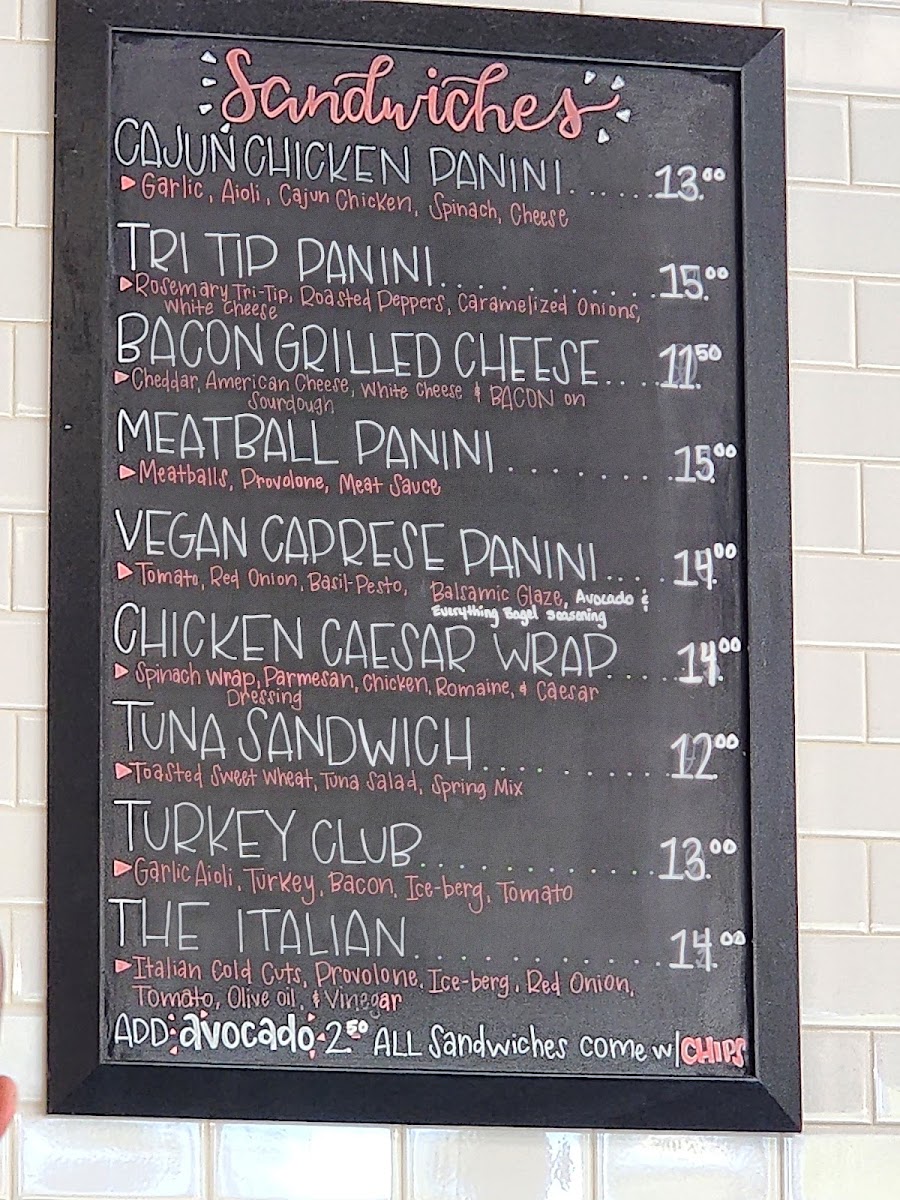 Sandwiches
CAJUN CHICKEN PANINI. ..... 13.00
Garlic, Aioli, Cajun Chicken, Spinach, Cheese
TRI TIP PANINI............ 15.00
Rosemary Tri-Tip, Roasted Peppers, Caramelized Onions,
White Cheese
BACON GRILLED CHEESE.... 11.50
Cheddar, American Cheese, White Cheese & BACON on
Sourdough
MEATBALL PANINI......... 15.00
Meatballs, Provolone, Meat Sauce
VEGAN CAPRESE PANINI.... 14.00
Tomato, Red Onion, Basil-Pesto, Balsamic Glaze, Avocado &
Everything Bagel Seasoning
CHICKEN CAESAR WRAP.... 14.00
Spinach Wrap, Parmesan, Chicken, Romaine, & Caesar
Dressing
TUNA SANDWICH......... 12.00
Toasted Sweet Wheat, Tuna Salad, Spring Mix
TURKEY CLUB............ 13.00
Garlic Aioli, Turkey, Bacon, Ice-berg, Tomato
THE ITALIAN............ 14.00
Italian Cold Cuts, Provolone, Ice-berg, Red Onion,
Tomato, Olive oil, & Vinegar
ADD avocado 2.50 ALL Sandwiches come w/ CHIPS